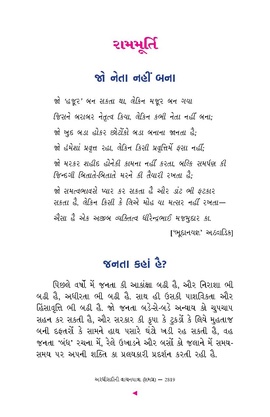 રામમૂર્તિ
જો નેતા નહીં બના
જો 'હજૂર' બન સકતા થા, લેકિન મજૂર બન ગયા
જિસને બરાબર નેતૃત્વ કિયા, લેકિન કભી નેતા નહીં બના;
જો ખુદ બડા હોકર છોટોંકો બડા બનાના જાનતા હૈ;
જો હંમેશાં પ્રવૃત્ત રહા, લેકિન કિસી પ્રવૃત્તિમેં ફસા નહીં;
જો મરકર શહીદ હોનેકી કામના નહીં કરતા, બલ્કિ સમર્પણ કી
જિન્દગી બિતાતે-બિતાતે મરને કી તૈયારી રખતા હૈ;
જો સમત્વભાવસે પ્યાર કર સકતા હૈ ઔર ડાંટ ભી ફટકાર
સકતા હૈ, લેકિન કિસી કે લિએ મોહ યા મત્સર નહીં રખતા—
ઐસા હૈ એક અજીબ વ્યક્તિત્વ ધીરેન્દ્રભાઈ મજમુદાર કા.
['ભૂદાનયજ્ઞ' અઠવાડિક]
જનતા કહાં હૈ?
પિછલે વર્ષોં મેં જનતા કી આકાંક્ષા બઢી હૈ, ઔર નિરાશા ભી
બઢી હૈ, અધીરતા ભી બઢી હૈ. સાથ હી ઉસકી પાશવિકતા ઔર
હિંસાવૃત્તિ ભી બઢી હૈ. જો જનતા બડેસે-બડે અન્યાય કો ચુપચાપ
સહન કર સકતી હૈ, ઔર સરકાર કી કૃપા કે ટુકડોં કે લિયે મુહતાજ
બની દફ્તરોં કે સામને હાથ પસારે ઘંટો ખડી રહ સકતી હૈ, વહ
જનતા 'બંધ' રચના મેં, રેલેં ઉખાડને ઔર બસોં કો જલાને મેં સમય-
સમય પર અપની શક્તિ કા પ્રલયકારી પ્રદર્શન કરતી રહી હૈ.